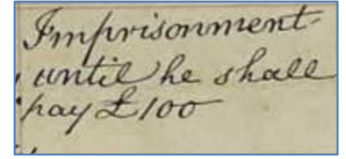 Imprisonment
until he shall
pay £100